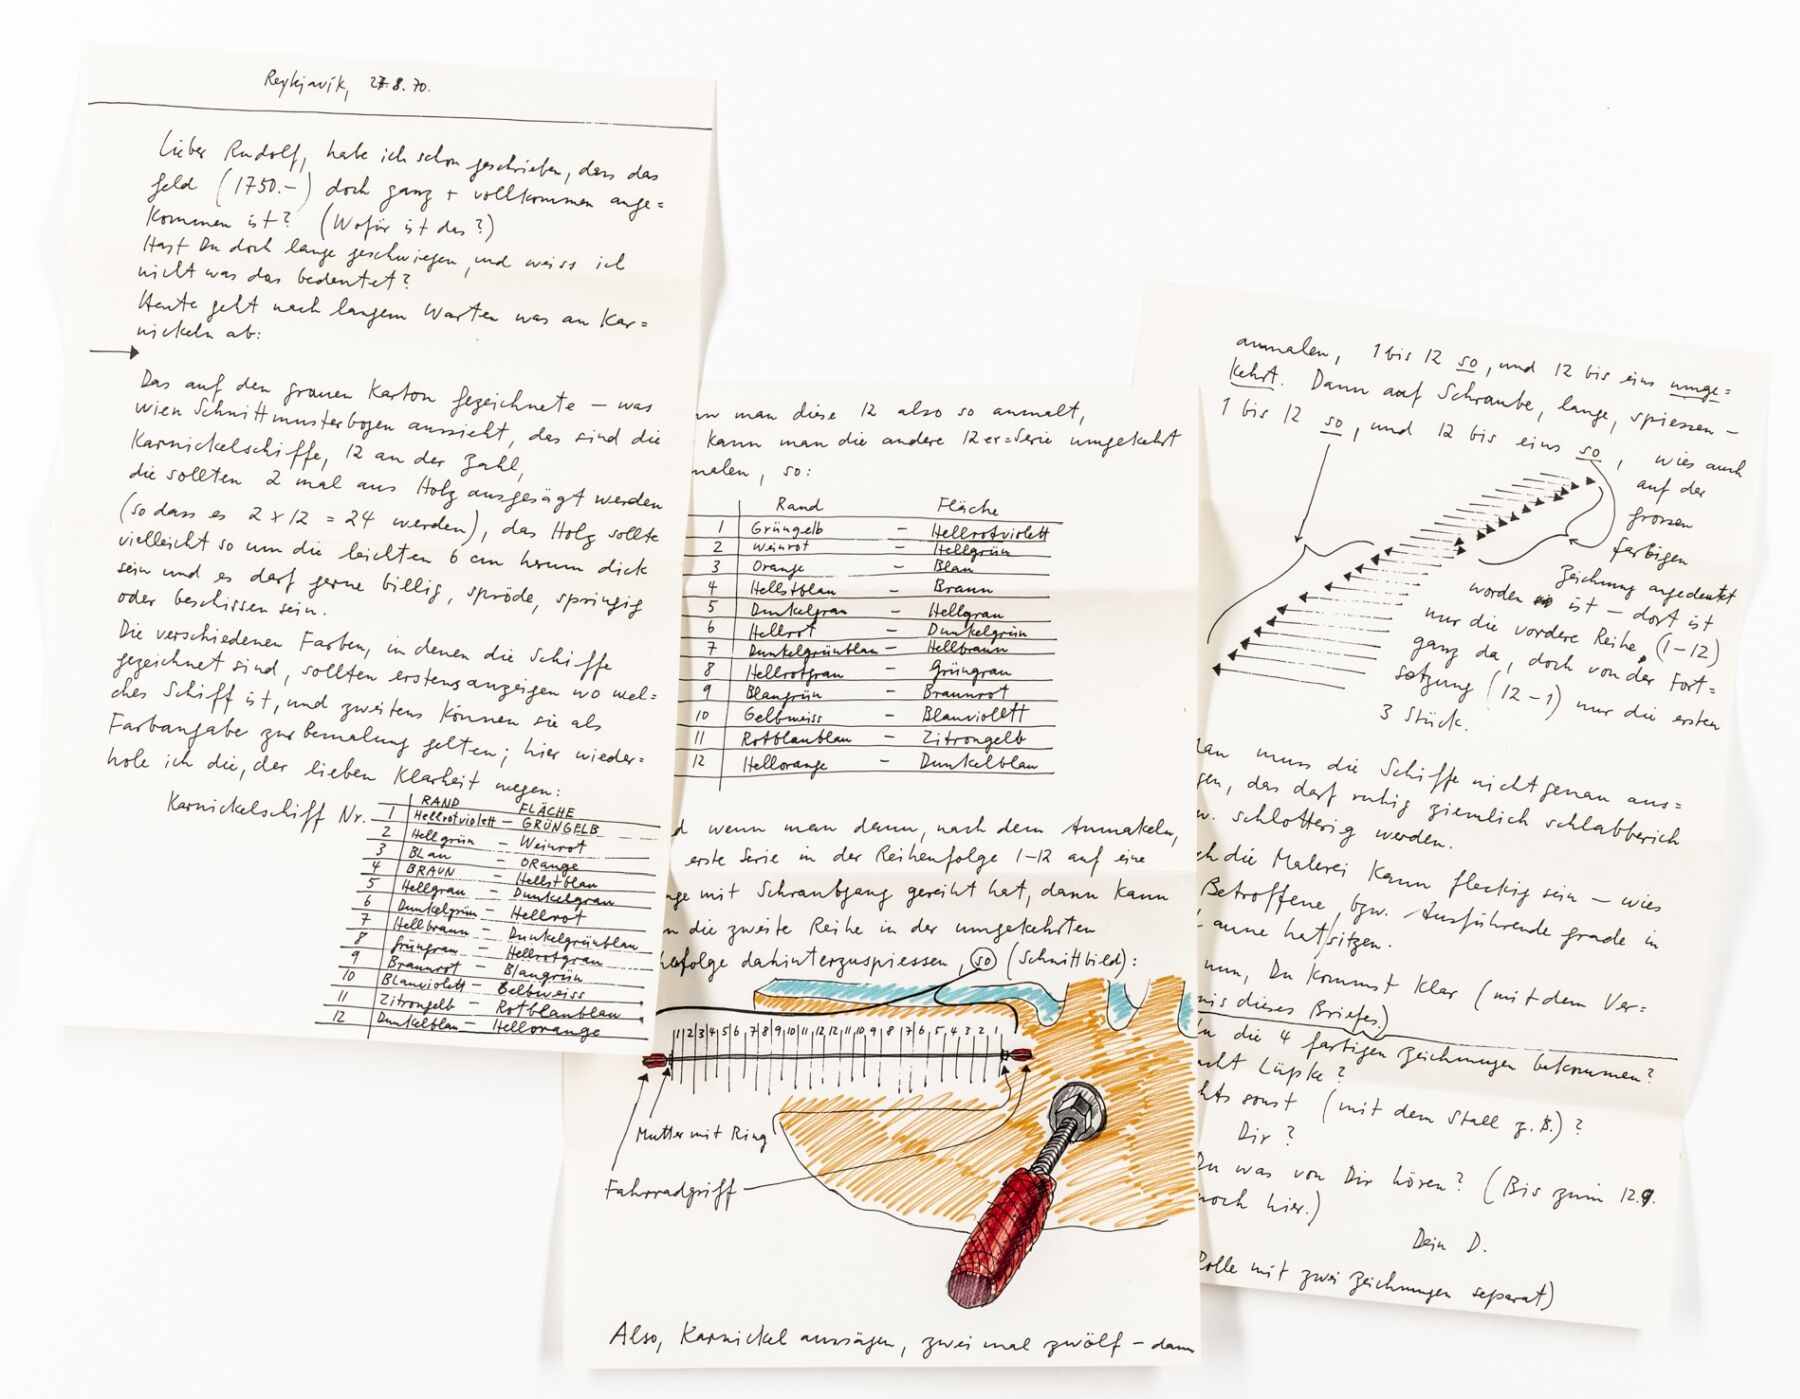 Reykjavík, 27.8.70.
Lieber Rudolf, habe ich schon geschrieben, dass das
Geld (1750.-) doch ganz + vollkommen ange=
kommen ist? (Wofür ist das?)
Hast Du doch lange geschwiegen, und weiss ich
nicht was das bedeutet?
Heute geht nach langem Warten was an Kar=
nickeln ab:
Das auf den grauen Karton gezeichnete – was
wien Schnittmusterbogen aussieht, das sind die
Karnickelschiffe, 12 an der Zahl,
die sollten 2 mal aus Holz ausgesägt werden
(so dass es 2 x 12 = 24 werden), das Holz sollte
vielleicht so um die leichten 6 cm herum dick
sein und es darf gerne billig, spröde, springig
oder beschissen sein.
Die verschiedenen Farben, in denen die Schiffe
gezeichnet sind, sollten erstens anzeigen wo wel=
ches Schiff ist, und zweitens können sie als
Farbangabe zur Bemalung gelten; hier wieder=
hole ich die, der lieben Klarheit wegen:
RAND FLÄCHE
Karnickelschiff Nr. 1 Hellrotviolett – GRÜNGELB
2 Hellgrün – Weinrot
3 BLau – ORange
4 BRAUN – Hellstblau
5 Hellgrau – Dunkelgrau
6 Dunkelgrün – Hellrot
7 Hellbraun – Dunkelgrünblau
8 Grüngrau – Hellrotgrau
9 Braunrot – Blaugrün
10 BLauviolett – Gelbweiss
11 Zitrongelb – Rotblaublau
12 Dunkelblau – Hellorange
man diese 12 also so anmalt,
kann man die andere 12er=Serie umgekehrt
malen, so:
Rand Fläche
1 Grüngelb – Hellrotviolett
2 Weinrot – Hellgrün
3 Orange – Blau
4 Hellstblau – Braun
5 Dunkelgrau – Hellgrau
6 Hellrot – Dunkelgrün
7 Dunkelgrünblau – Hellbraun
8 Hellrotgrau – Grüngrau
9 Blaugrün – Braunrot
10 Gelbweiss – Blauviolett
11 Rotblaublau – Zitrongelb
12 Hellorange – Dunkelblau
d wenn man dann, nach dem Anmalen,
erste Serie in der Reihenfolge 1–12 auf eine
nge mit Schraubgang gereiht hat, dann kann
n die zweite Reihe in der umgekehrten
henfolge dahinterzuspiessen, so (Schnittbild):
1 2 3 4 5 6 7 8 9 10 11 12 12 11 10 9 8 7 6 5 4 3 2 1
Mutter mit Ring
Fahrradgriff
Also, Karnickel aussägen, zwei mal zwölf – dann
anmalen, 1 bis 12 so, und 12 bis eins umge=
kehrt. Dann auf Schraube, lange, spiessen –
1 bis 12 so, und 12 bis eins so, wies auch
auf der
grossen
farbigen
Zeichnung angedeutet
worden ist – dort ist
nur die vordere Reihe, (1–12)
ganz da, doch von der Fort=
setzung (12–1) nur die ersten
3 Stück.
man muss die Schiffe nicht genau aus=
gen, das darf ruhig ziemlich schlabberich
w. schlotterig werden.
ch die Malerei kann fleckig sein – wies
Betroffene, bzw. Ausführende grade in
Laune hat/sitzen.
nun, Du kommst klar (mit dem Ver=
nis dieses Briefes.)
Du die 4 farbigen Zeichnungen bekommen?
acht Lüpke?
hts sonst (mit dem Stall z.B.)?
Dir?
Du was von Dir hören? (Bis zum 12.9.
noch hier.)
Dein D.
Rolle mit zwei Zeichnungen separat)